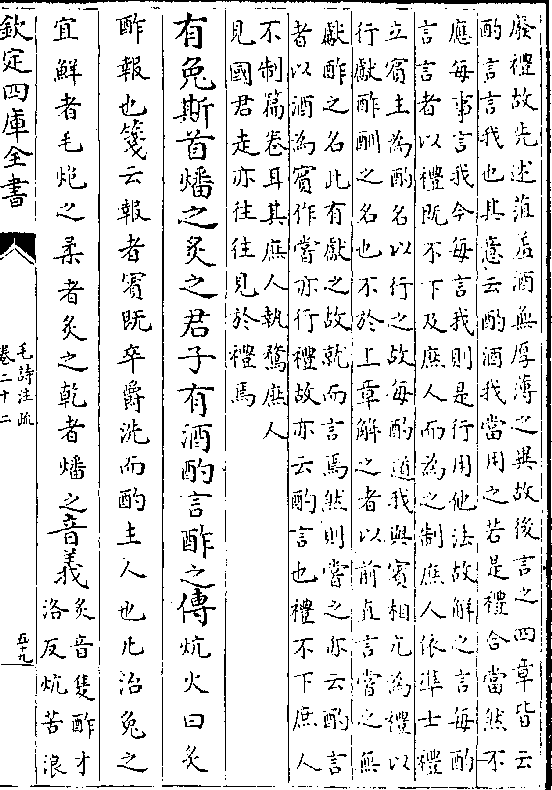 廢禮故先述葅羞酒無厚薄之異故後言之四章皆云
酌言言我也其意云酌酒我當用之若是禮合當然不
應每事言我今每言我則是行用他法故解之言每酌
言言者以禮既不下及庶人而為之制庶人依準士禮
立賓主為酌名以行之故每酌道我與賓相亢為禮以
行獻酢酬之名也不於上章解之者以前直言嘗之無
獻酢之名此有獻之故就而言焉然則嘗之亦云酌言
者以酒為賓作嘗亦行禮故亦云酌言也禮不下庶人
不制篇卷耳其庶人執鶩庶人
見國君走亦往往見於禮焉
有兔斯首燔之炙之君子有酒酌言酢之傳炕火曰炙
酢報也箋云報者賓既卒爵洗而酌主人也凡治兔之
宜鮮者毛炮之柔者炙之乾者燔之音義炙音隻酢才
洛反炕苦浪
欽定四庫全書
毛詩注疏
卷二十二
五十九